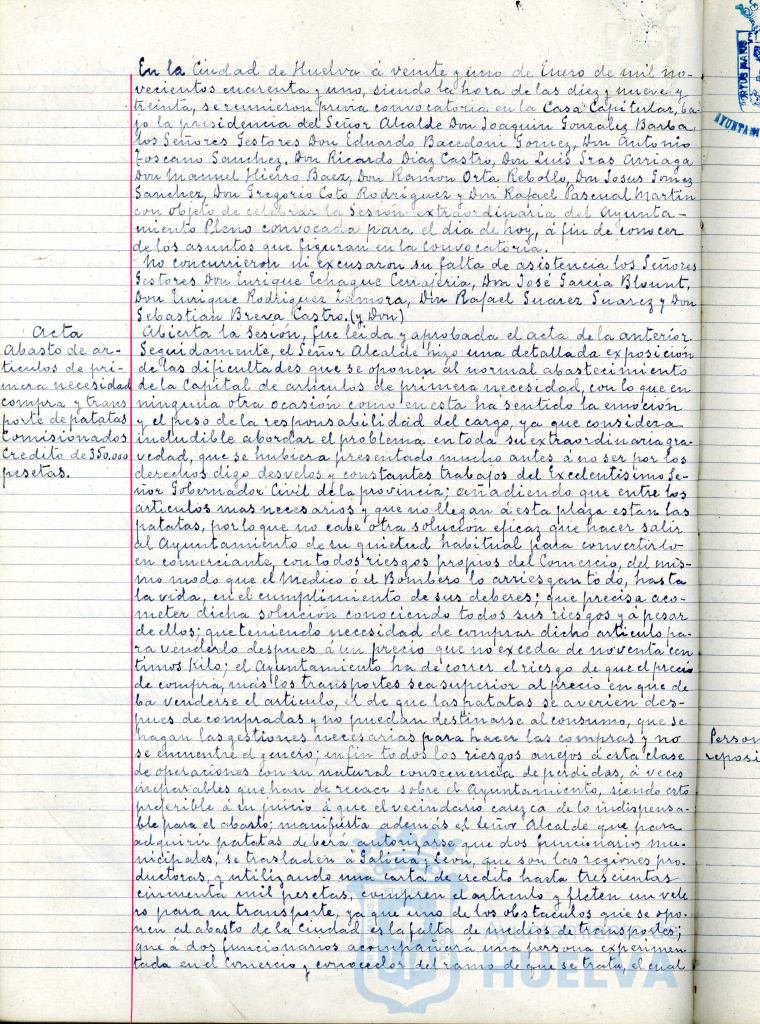 En la Ciudad de Huelva á veinte y uno de Enero de mil no-
vecientos cuarenta y uno, siendo la hora de las diez y nueve y
treinta, se reunieron previa convocatoria en la Casa Capitular, ba-
jo la presidencia del Señor Alcalde Don Joaquin Gonzalez Barba,
los Señores Gestores Don Eduardo Bacedoni Gomez, Don Antonio
Toscano Sanchez, Don Ricardo Diaz Castro, Don Luis Gras Arriaga
Don Manuel Hierro Baez, Don Ramon Orta Rebollo, Don Josus Gomez
Sanchez, Don Gregorio Coto Rodriguez y Don Rafael Pascual Martin
con objeto de celebrar la Sesion extraordinaria del Ayunta-
miento Pleno convocada para el dia de hoy, á fin de conocer
de los asuntos que figuran en la convocatoria.
No concurrieron ni excusaron su falta de asistencia los Señores
Gestores Don Enrique Echague Cerrajería, Don José Garcia Blount,
Don Enrique Rodriguez Zamora, Don Rafael Suarez Suarez y Don
Sebastian Breva Castro. (y Don)
Acta
Abasto de ar-
ticulos de pri-
mera necesidad
compra y trans
porte de patatas
Comisionados
Credito de 350.000
pesetas.
Abierta la Sesión, fue leida y aprobada el acta de la anterior.
Seguidamente, el Señor Alcalde hizo una detallada exposición
de las dificultades que se oponen al normal abastecimiento
de la Capital de articulos de primera necesidad, con lo que en
ninguna otra ocasión como en esta ha sentido la emoción
y el peso de la responsabilidad del cargo, ya que considera
ineludible abordar el problema en toda su extraordinaria gra-
vedad, que se hubiera presentado mucho antes á no ser por los
derechos digo desvelos y constantes trabajos del Excelentisimo Se-
ñor Gobernador Civil de la provincia; añadiendo que entre los
articulos mas necesarios y que no llegan á esta plaza estan las
patatas, por lo que no cabe otra solución eficaz que hacer salir
al Ayuntamiento de su quietud habitual para convertirlo
en comerciante, con todos riesgos propios del Comercio, del mis-
mo modo que el Medico ó el Bombero lo arriesgan todo, hasta
la vida, en el cumplimiento de sus deberes; que precisa aco-
meter dicha solución conociendo todos sus riesgos y á pesar
de ellos; que teniendo necesidad de comprar dicho articulo pa-
ra venderlo despues á un precio que no exceda de noventa cen
timos Kilo; el Ayuntamiento ha de correr el riesgo de que el precio
de compra, mas los transportes sea superior al precio en que de
ba venderse el articulo, el de que las patatas se averien des-
pues de compradas y no puedan destinarse al consumo, que se
hagan las gestiones necesarias para hacer las compras y no
se encuentre el genero; en fin todos los riesgos anejos á esta clase
de operaciones con su natural consecuencia de perdidas, á veces
irreparables que han de recaer sobre el Ayuntamiento, siendo esto
preferible á su juicio á que el vecindario carezca de lo indispensa-
ble para el abasto; manifiesta además el Señor Alcalde que para
adquirir patatas deberá autorizarse que dos funcionarios mu-
nicipales, se trasladen á Galicia y Leon, que son las regiones pro-
ductoras, y utilizando una carta de credito hasta trescientas
cincuenta mil pesetas, compren el articulo y fleten un vele
ro para su transporte, ya que uno de los obstaculos que se opo-
nen al abasto de la Ciudad es la falta de medios de transportes;
que á dos funcionarios acompañará una persona experimen-
tada en el Comercio y conocedor del ramo de que se trata, el cual
Person
reposi
AYUNTA
HUELVA